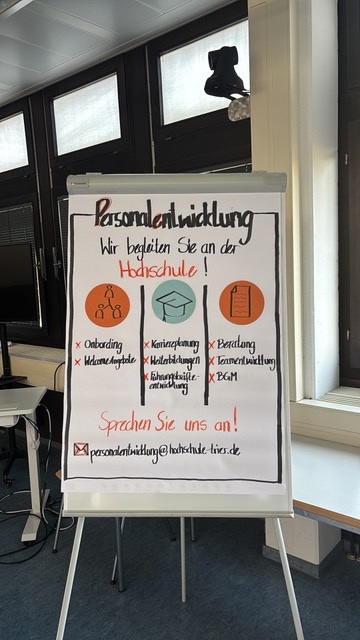 Personalentwicklung
Wir begleiten Sie an der
Hochschule!
x Onbording
x Welcome Angebote
x Karriereplanung
x Weiterbildungen
x Führungskräfte-
entwicklung
x Beratung
x Teamentwicklung
x BGM
Sprechen Sie uns an!
personalentwicklung@hochschule-trier.de